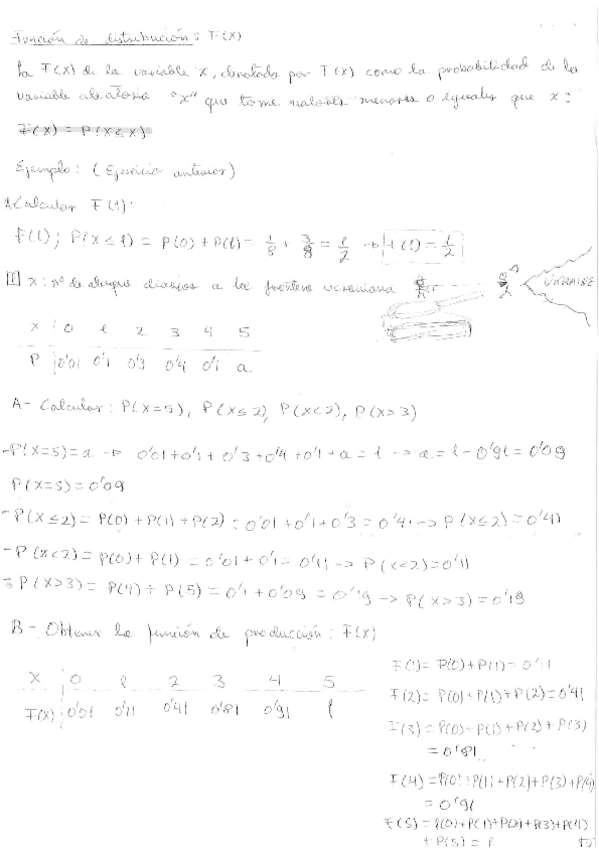 Función de distribución: F(X)
La F(X) de la variable X, denotada por F(X) como la probabilidad de la
variable aleatoria "X" que tome valores menores o iguales que x:
F(X) = P(X≤X)
Ejemplo: (Ejercicio anterior)
Calcular F(1):
F(1); P(X≤1) = P(0) + P(1) = 1/8 + 3/8 = 1/2 → F(1) = 1/2
1 X: nº de ataques diarios a la frontera ucraniana
UKRAINE
X 0 1 2 3 4 5
P 0'01 0'1 0'3 0'4 0'1 a
A- Calcular: P(X=5), P(X≤2), P(X<2), P(X>3)
-P(X=5) = a → 0'01+0'1+0'3+0'4+0'1+a = 1 → a = 1-0'91 = 0'09
P(X=5) = 0'09
-P(X≤2) = P(0) + P(1) + P(2) = 0'01+0'1+0'3 = 0'41 → P(X≤2) = 0'41
-P(X<2) = P(0) + P(1) = 0'01+0'1 = 0'11 → P(X<2) = 0'11
-P(X>3) = P(4) + P(5) = 0'1+0'09 = 0'19 → P(X>3) = 0'19
B- Obtener la función de producción: F(X)
X 0 1 2 3 4 5
F(X) 0'01 0'11 0'41 0'81 0'91 1
F(1) = P(0)+P(1) = 0'11
F(2) = P(0)+P(1)+P(2) = 0'41
F(3) = P(0)+P(1)+P(2)+P(3)
= 0'81
F(4) = P(0)+P(1)+P(2)+P(3)+P(4)
= 0'91
F(5) = P(0)+P(1)+P(2)+P(3)+P(4)
+P(5) = 1